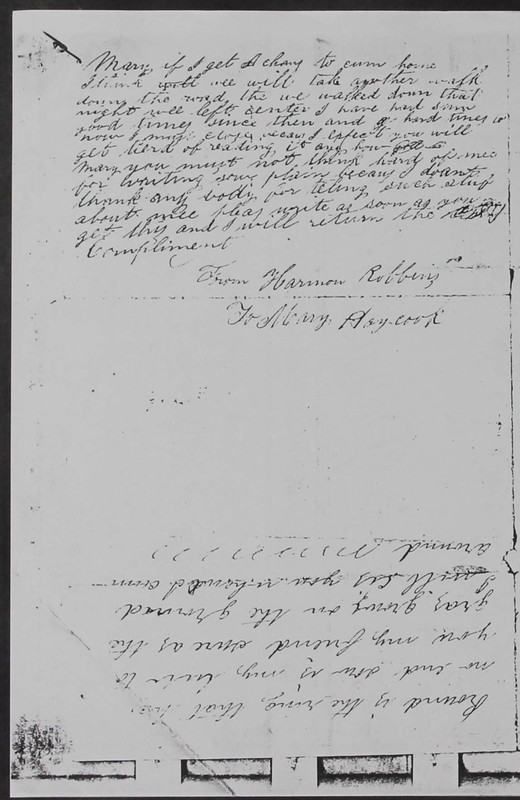 Mary if I get A chanc to cum home
I think will wee will take another walk
down the road the we walked down that
night wee left center I have had sum
good times since then and hard times to
now I must close becaus I expect you will
get tierd of reading it any how
Mary you must not think hard of mee
for writing sow plain becaus I doant
thank any body for teling such stuf
about mee pleas write as soon as you
get this and I will return the
Compliment
From Harmon Robbins
To Mary Haycook
Round is the ring that has
no end sow is my luv to
you my friend shure as the
gras grows on the ground
I will bee your husband
around